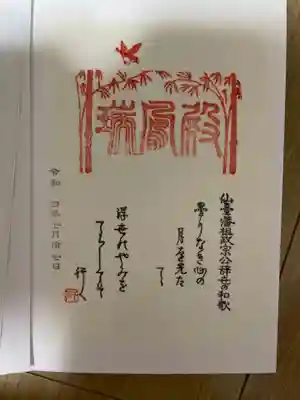 瑞鳳殿
仙臺藩祖政宗公辞世の和歌
曇りなき心の
月を先た
てて
浮世のやみを
てらしてそ
行く
令和 年 月 日